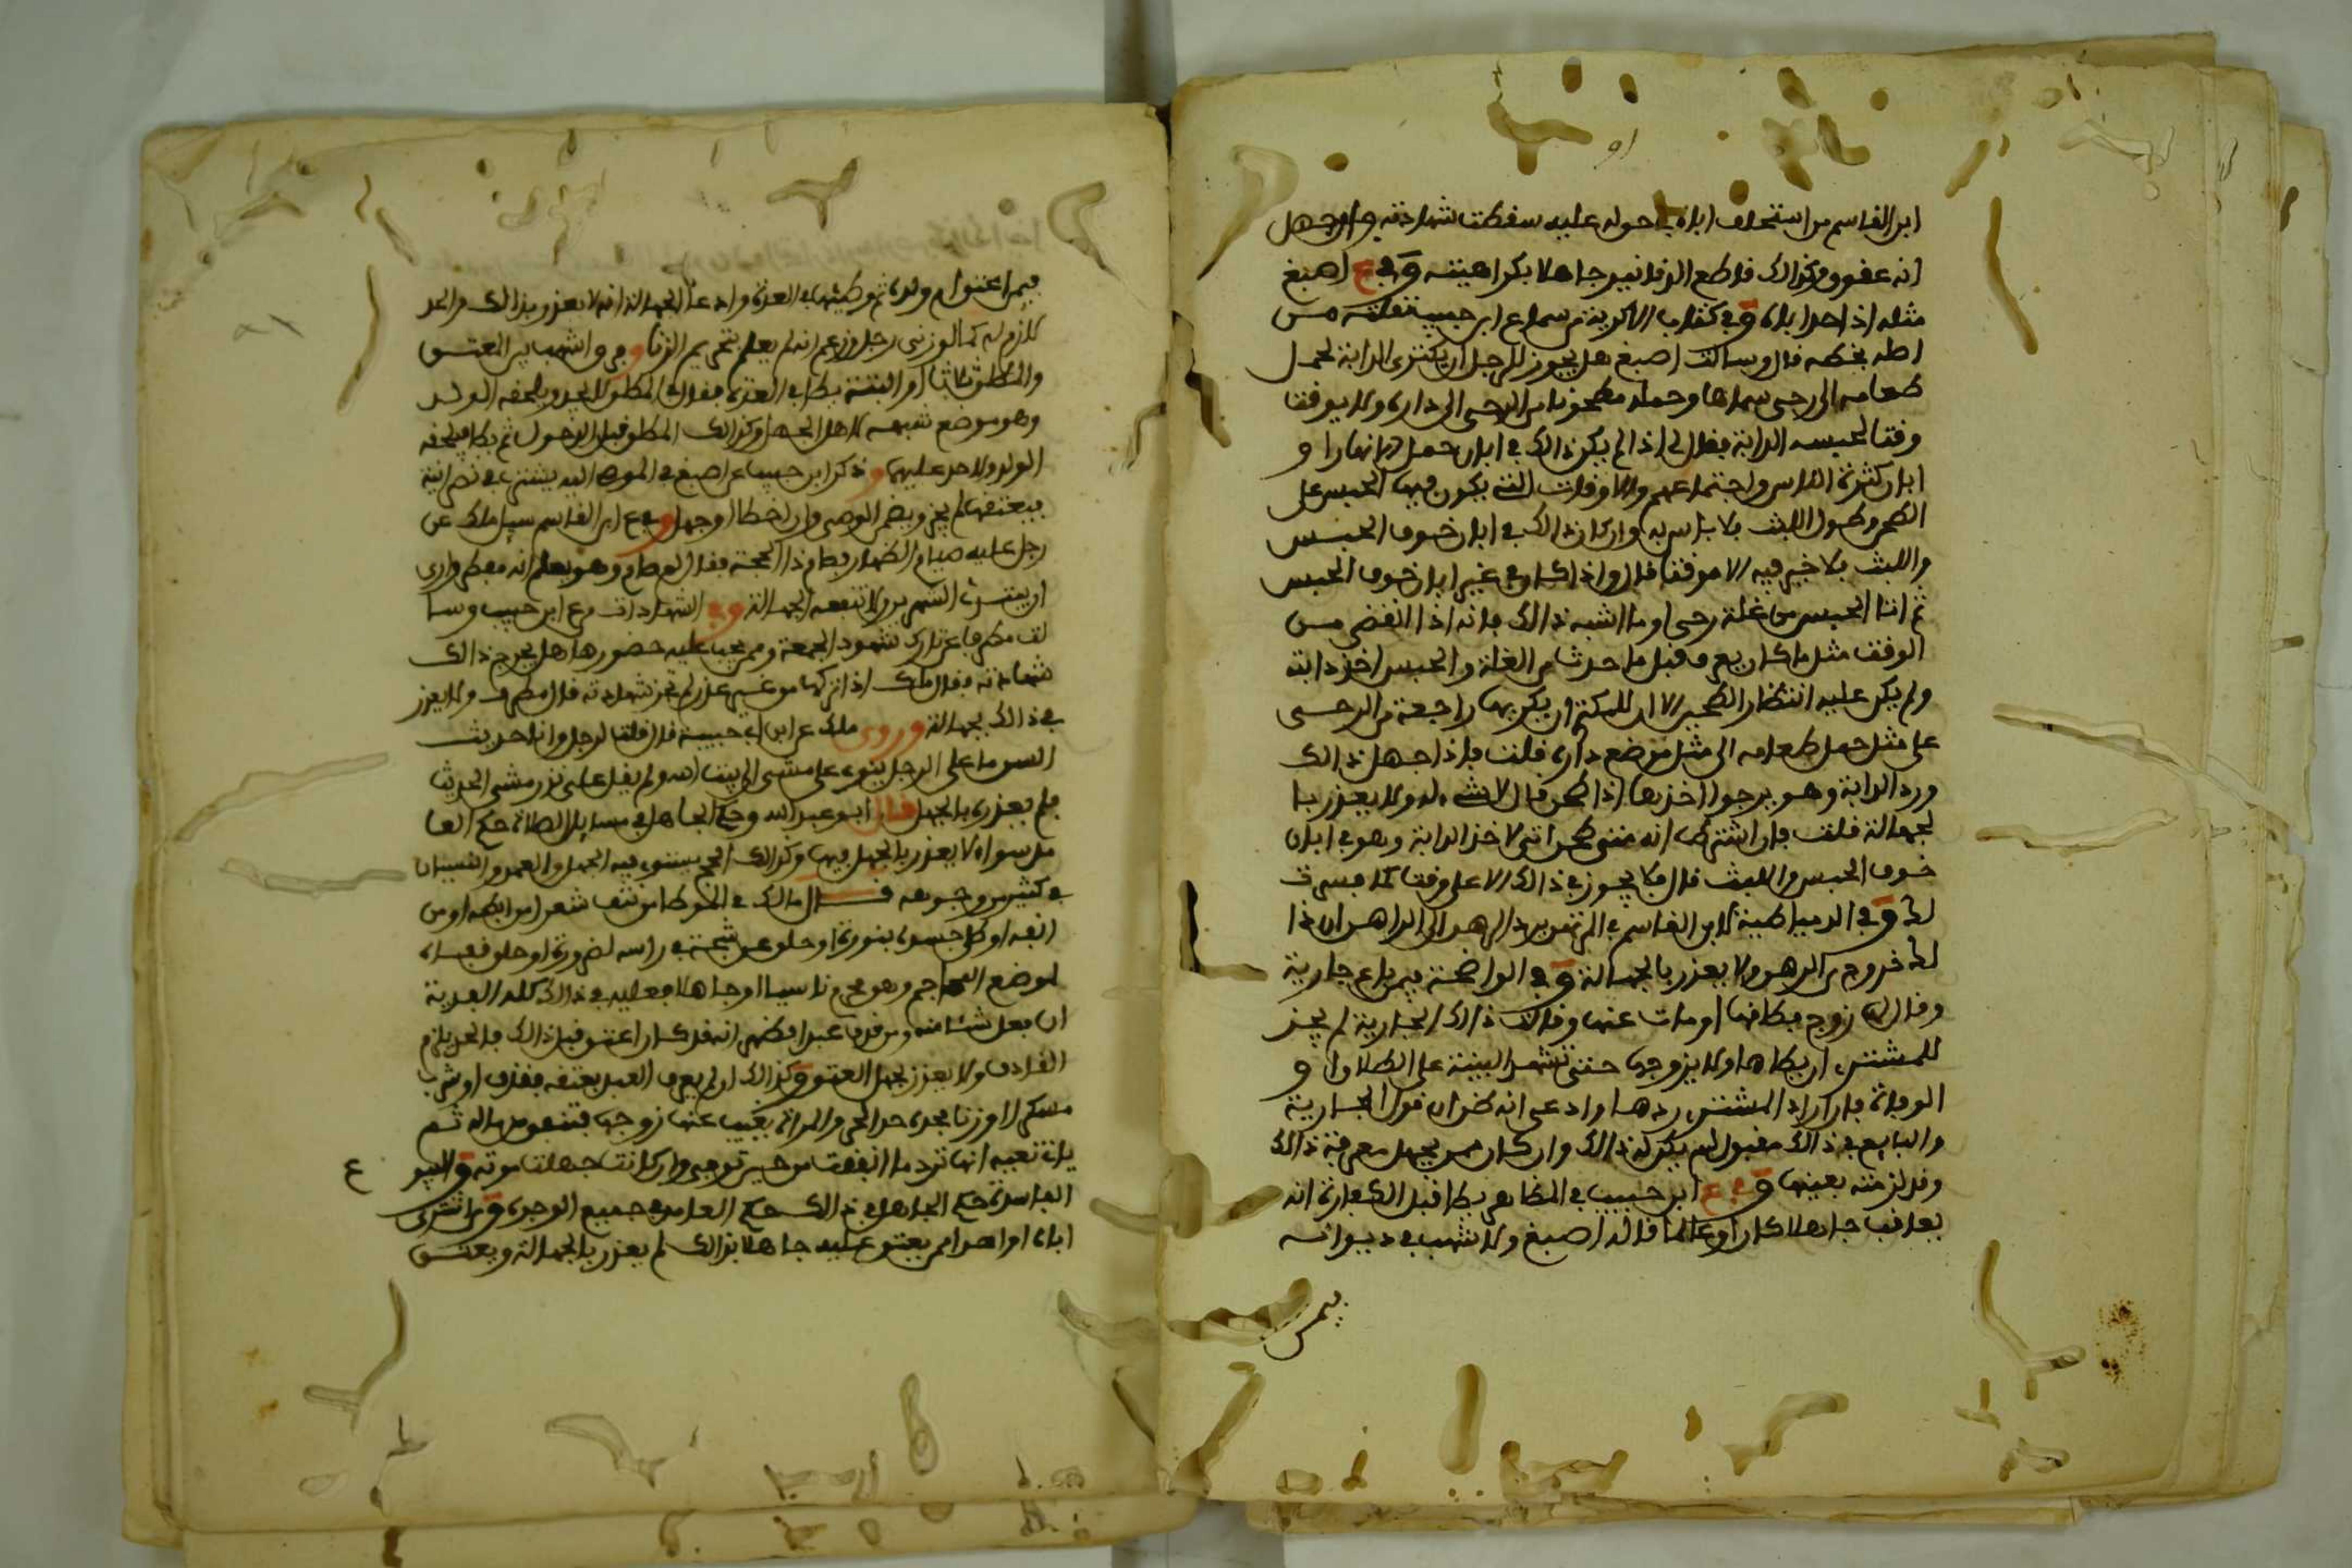 ابن القاسم من استحلف اباه في حق له عليه سقطت شهادته ولو جهل
انه عقوق وكذلك قاطع الدنانير جاهلا بكراهيته وفي ع اصبغ
مثله اذا حد اباه وفي كتاب الاكرية من سماع ابن حبيب نقلته من
اصله بخطه قال وسالت اصبغ هل يجوز للرجل ان يكتري الدابة لحمل
طعامه الى رحى سماها وحمله مطحونا من الرحى الى داره ولا يوقت
وقتا لحبسه الدابة فقال لي اذا لم يكن ذلك في ابان حمل الانهار او
ابان كثرة الناس واجتماعهم والاوقات التي يكون فيها الحبس على
الطحن وطول اللبث فلا باس به وان كان ذلك في ابان خوف الحبس
واللبث فلا خير فيه الا موقتا قال واذا كان في غير ابان خوف الحبس
ثم اتا الحبس من غلة رحى او ما اشبه ذلك فانه اذا انقضى مـن
الوقت مثل ما كان يعرف قبل ما حدث من الغلة والحبس اخذ دابته
ولم يكن عليه انتظار الطحين الا ان للمكتري ان يكريها راجعة من الرحـى
على مثل حمل طعامه الى مثل موضع داره قلت فاذا جهل ذلك
ورد الدابة وهو يرجو اخذها اذا طحن قال لا شيء له ولا يعذر با
لجهالة قلت فان اشترط انه متى طحن اتى لاخذ الدابة وهو في ابان
خوف الحبس واللبث قال فلا يجوز في ذلك الا على وقت كما فسرت
لك وفي الدمياطية لابن القاسم في المرتهن يرد الرهن الى الراهن ان ذا
لك خروج من الرهن ولا يعذر بالجهالة وفي الواضحة فيمن باع جارية
وقال لها زوج فطلقها او مات عنها وقالت ذلك الجارية لم يجز
للمشتري ان يطاها ولا يزوجها حتى تشهد البينة على الطلاق او
الوفاة فان اراد المشتري ردها وادعى انه ظن ان قول الجارية
والبايع في ذلك مقبول لم يكن له ذلك وان كان ممن يجهل معرفة ذلك
وقد لزمته بعيبها وفي ع ابن حبيب في المظاهر يطا قبل الكفارة انه
يعاقب جاهلا كان او عالما قاله اصبغ ولاشهب في ديوانه
فيمن
فيمن اعتق ام ولده ثم وطئها في العدة وادعا الجهالة انه لا يعذر بذلك والحد
لازم له كما لو زنى رجل وزعم انه لم يعلم بتحريم الزنا وفرق اشهب بين المعتـق
والمطلق ثلاثا او البتة يطا في العدة فقال في المطلق لا يحد ويلحقه الولـد
وهو موضع شبهة لاهل الجهل وكذلك المطلق قبل الدخول ثم يطا فيلحقه
الولد ولا حد عليهما وذكر ابن حبيب عن اصبغ في الموصى اليه يشتري نصرانية
فيعتقها لم يجز ويضمن الوصي وان اخطا او جهل وفي ع ابن القاسم سيل ملك عن
رجل عليه صيام الظهار فصام ذا الحجة فقال ان صام وهو يعلم انه مفطر وارى
ان يبتدئ الشهرين ولا تنفعه الجهالة وفي الشهادات من ع ابن حبيب وسا
لت مطرفا عن تارك شهود الجمعة وممن يجب عليه حضورها هل يجرح ذلك
شهادته فقال ملك اذا تركها من غير عذر لم تجز شهادته قال مطرف ولا يعذر
في ذلك بجهالة وروى ملك عن ابن ابي حبيبة قال قلت لرجل وانا حديث
السن ما على الرجل يقول علي مشي الى بيت الله ولم يقل علي نذر مشي الحديث
فلم يعذره بالجهل قال ابو عبد الله وحكم الجاهل في مسايل الصلاة حكم العا
مد سواء لا يعذر بالجهل فيها وكذلك الحج يستوي فيه الجهل والعمد والنسيان
في كثير من وجوهه قـــال مالك في الموطا من نتف شعرا من ابطه او من
انفه او طلى جسده بنورة او حلق عن شجة في راسه لضرورة او حلق قفـاه
لموضع المحاجم وهو محرم ناسيا او جاهلا فعليه في ذلك كله الفدية
ان فعل شيئا منه ومن قذف عبدا فظهر انه قد كان اعتق قبل ذلك فالحد يلزم
القاذف ولا يعذر بجهل العتق وكذلك ان لم يعرف العبد بعتقه فقذف او شرب
مسكرا او زنا فحده حد الحر والمراة يغيب عنها زوجها فتنفق من ماله ثم
ياتي نعيه انها ترد ما انفقت من حين توفي وان كانت جهلت موته والبيوع
ع
الفاسدة حكم الجاهل في ذلك حكم العامد في جميع الوجوه ومن اشترى
اباه او احدا ممن يعتق عليه جاهلا بذلك لم يعذر بالجهالة ويعتـق